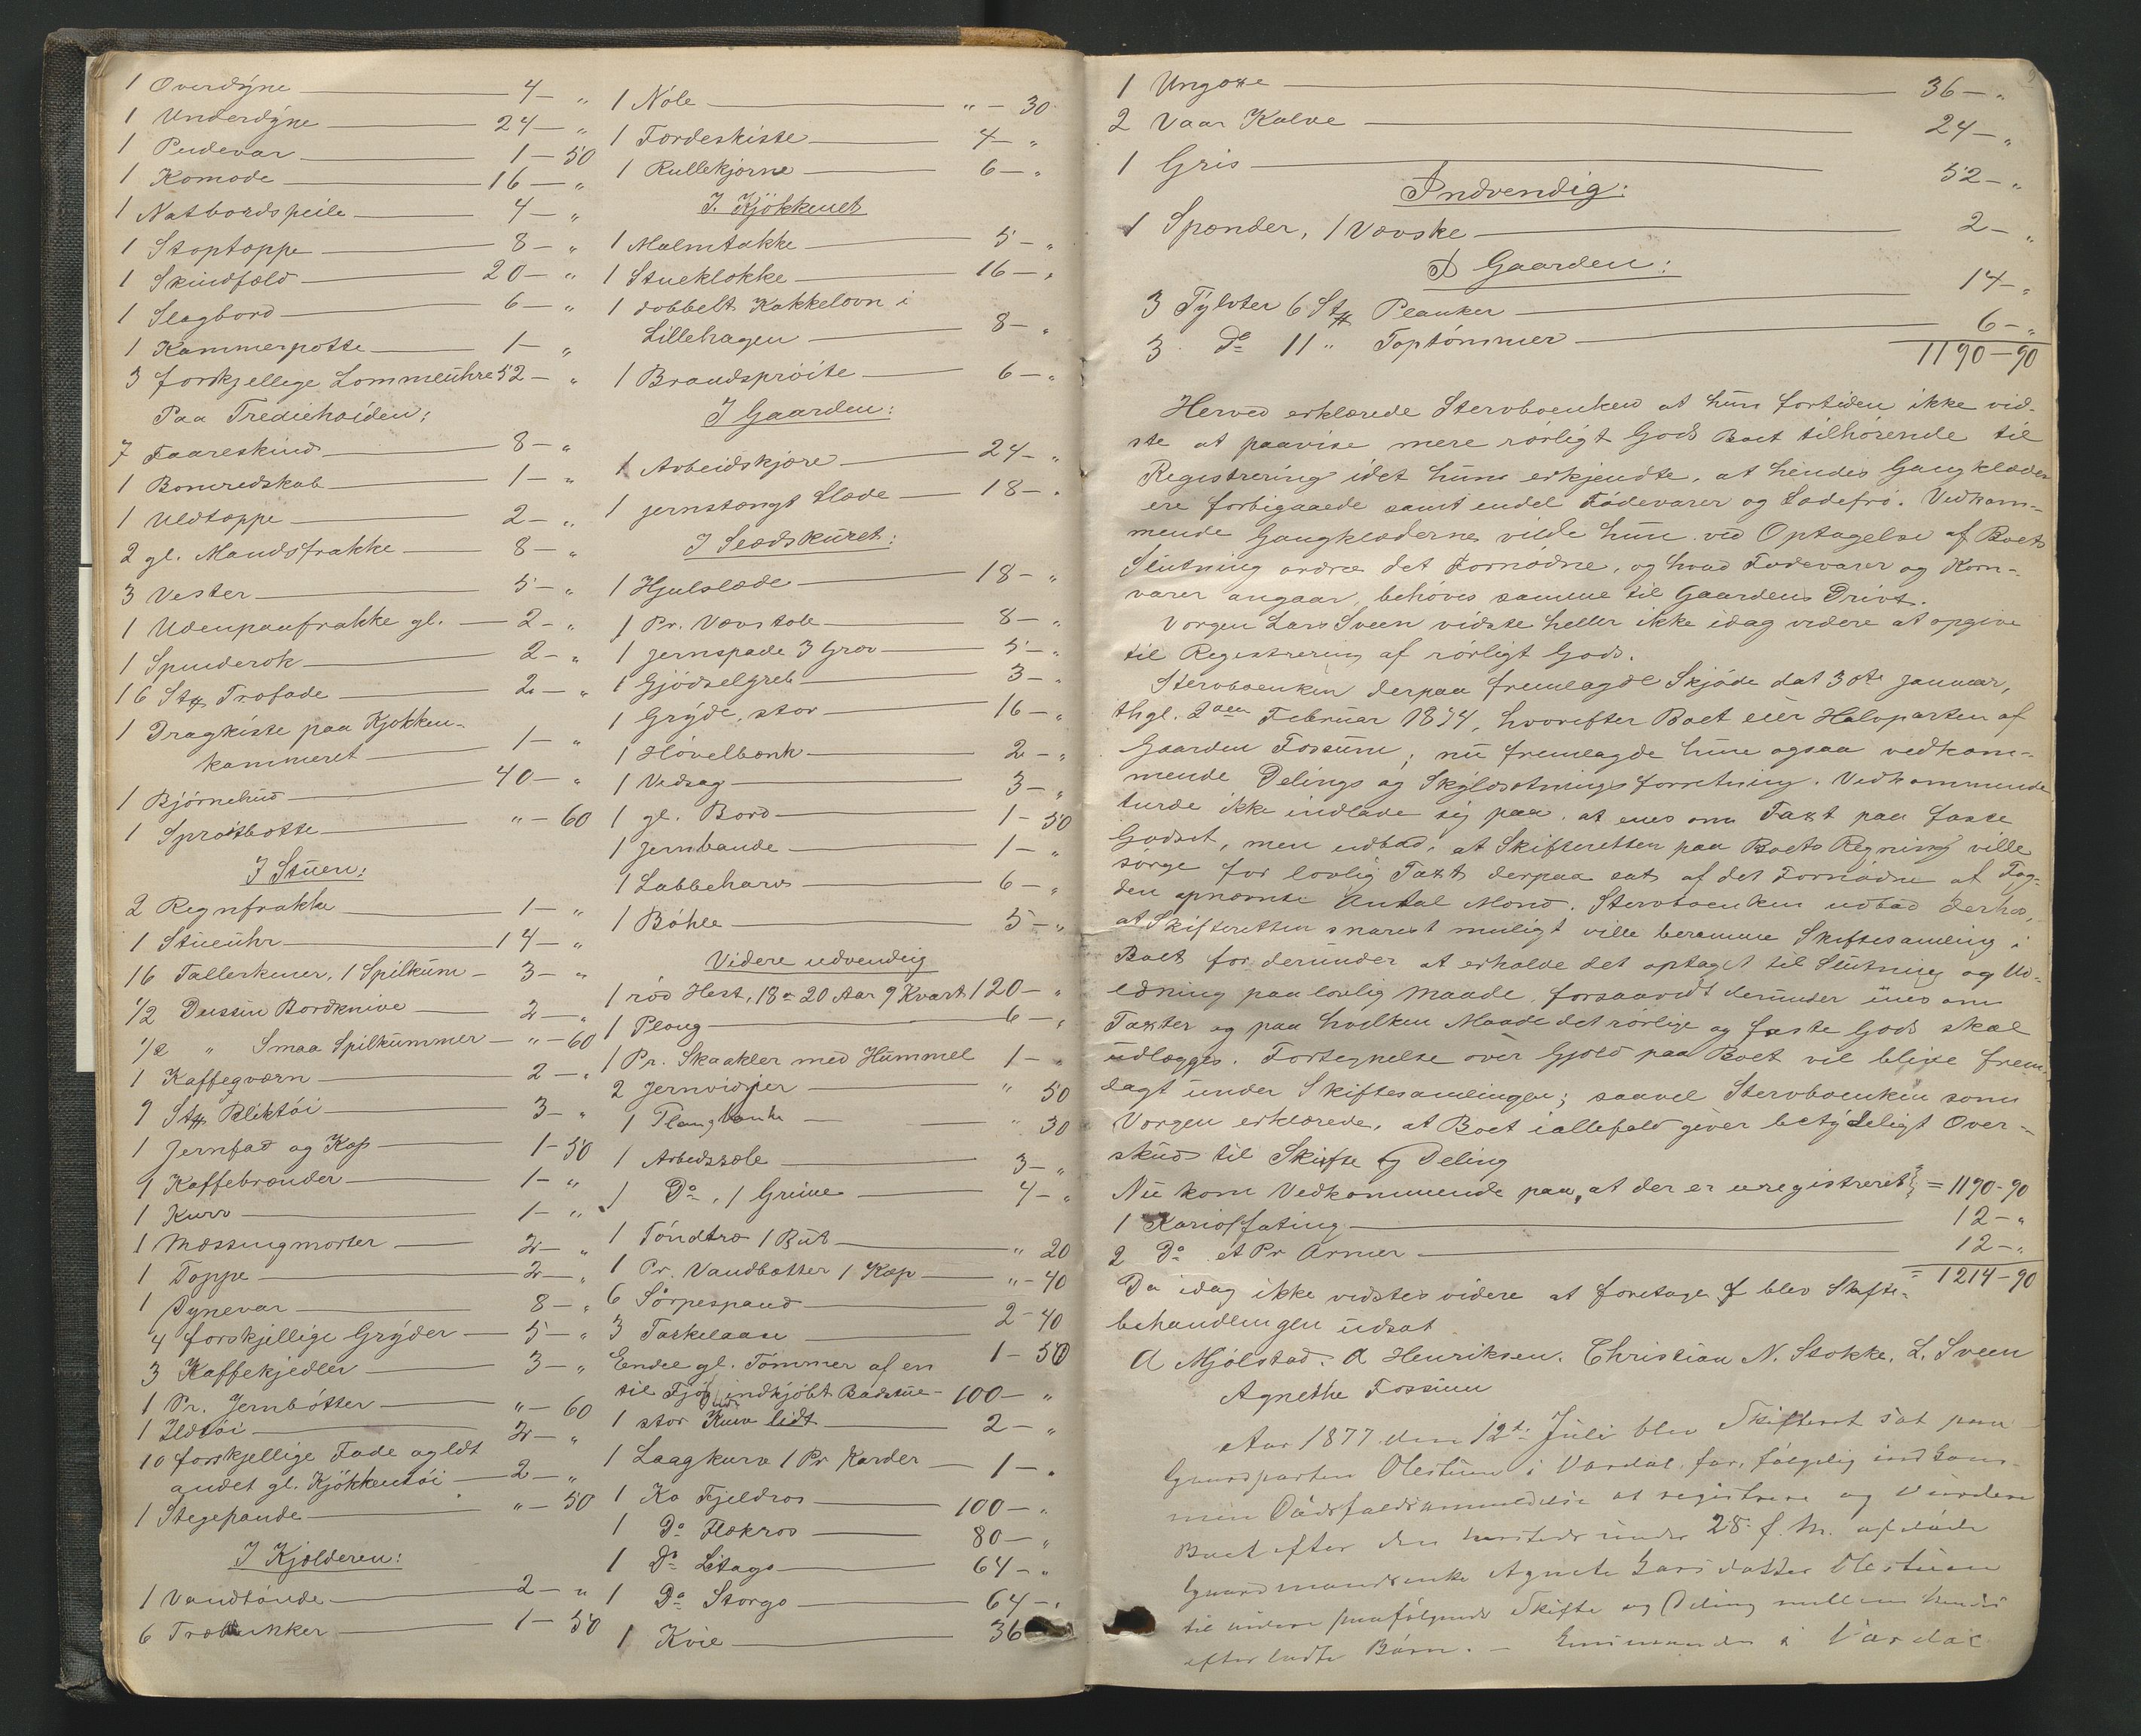 1 Overdyne 4 - "
1 Underdyne 24 - "
1 Pudevar 1 - 50
1 Komode 16 - "
1 Natbordspeile 4 - "
1 Stoptoppe 8 - "
1 Skindfæld 20 - "
1 Slagbord 6 - "
1 Kammerpotte 1 - "
3 forskjellige Lommeuhre 52 - "
Paa Trediehøiden:
7 Faareskind 8 - "
1 Bomredskab 1 - "
1 Uldtoppe 2 - "
2 gl. Mandsfrakke 8 - "
3 Vester 5 - "
1 Udenpaafrakke gl. 2 - "
1 Spinderok 2 - "
16 Stk Træfade 2 - "
1 Dragkiste paa Kjøkken-
kammeret 1 - "
1 Bjørnehud 40 - "
1 " - 60
I Stuen:
2 Regnfrakke 1 - "
1 Stueuhr 14 - "
16 Tallerkener, 1 Spilkum 3 - "
1/2 Dussin Bordknive 2 - "
1/2 " Smaa Spilkummer " - 60
1 Kaffegværn 2 - "
9 Stk Bliktøi 3 - "
1 Jernfad og Kop 1 - 50
1 Kaffebrænder 1 - "
1 Kurv 1 - "
1 Messingmorter 2 - "
1 Toppe 2 - "
1 Dynevar 8 - "
4 forskjellige Gryder 5 - "
3 Kaffekjedler 3 - "
1 Pr. Jernbøtter " - 60
1 Ildtøi 2 - "
10 forskjellige Fade og lidt
andet gl. Kjøkkentøi 2 - "
1 Stegepande " - 50
I Kjælderen:
1 Vandtønde 2 - "
6 Træbukker 1 - 50
1 Nøle " - 30
1 Færdeskiste 4 - "
1 Rullekjørne 6 - "
I Kjøkkenet
1 Malmtakke 5 - "
1 Stueklokke 16 - "
1 dobbelt Kakkelovn i
Lillehagen 8 - "
1 Brandsprøite 6 - "
I Gaarden:
1 Arbeidskjære 24 - "
1 jernstangt Slæde 18 - "
I Slædskuret:
1 Hjulslæde 18 - "
1 Pr. Vævstole 8 - "
1 Jernspade 3 Grev 5 - "
1 Gjødselgreb 3 - "
1 Gryde, stor 16 - "
1 Høvelbænk 2 - "
1 Vedsag 3 - "
1 gl. Bord 1 - 50
1 Jernbaande 1 - "
1 Labbeharv 6 - "
1 Bøhle 5 - "
Videre udvendig
1 rød Hest, 18 a 20 Aar 9 Kvart 120 - "
1 Ploug 6 - "
1 Pr. Skaakler med Hummel 1 - "
2 Jernvidjer " 50
1 " 30
1 Arbedssele 3 - "
1 Do, 1 Grime 4 - "
1 Tøndtræ 1 But " 20
1 Pr. Vandbøtter 1 Kop " - 40
6 Sørpespand 2 - 40
3 Taskelaase 1 - 50
Endel gl. Tømmer af en
til Fjøs indkjøbt Badstue 100 - "
1 stor Kurv lidt 2 - "
1 Laagkurv 1 Pr Karder 1 - "
1 Ko Fjeldros 100 - "
1 Do Flekros 80 - "
1 Do Litago 64 - "
1 Do Storgo 64 - "
1 Kvie 36
1 Ungoxe 36 - "
2 Vaar Kalve 24 - "
1 Gris 52 - "
Indvendig:
1 Spænder, 1 Vævske 2 - "
I Gaarden:
3 Tylvter 6 Stk Planker 14 - "
3 Do 11 " Toptømmer 6 - "
1190 - 90
Herved erklærede Stervboenken at hun fortiden ikke vid-
ste at paavise mere rørligt Gods Boet tilhørende til
Registrering idet hun erkjendte, at hendes Gangklæder
ere forbigaaede samt endel Fødevarer og Sædefrø. Vedkom-
mende Gangklæderne vilde hun ved Optagelse af Boets
Slutning ordne det Fornødne, og hvad Fødevarer og Korn-
varer angaar, behøves samme til Gaardens Drivt.
Vorgen Lars Sveen vidste heller ikke idag videre at opgive
til Registrering af rørligt Gods.
Stervboenken derpaa fremlagde Skjøde dat 30te Januar,
thgl. 2den Februar 1874, hvorefter Boet eier Halvparten af
Gaarden Fossum; nu fremlagde hun ogsaa vedkom-
mende Delings og Skyldsætningsforretning. Vedkommende
turde ikke indlade sig paa, at enes om Taxt paa faste
Godset, men udbad, at Skifteretten paa Boets Regning ville
sørge for lovlig Taxt derpaa sat af det Fornødne af Fog-
den opnævnte Antal Mænd. Stervboenken udbad derhos,
at Skifteretten snarest muligt ville beramme Skiftesamling i
Boet for derunder at erholde det optaget til Slutning og Ud-
lodning paa lovlig Maade, forsaavidt derunder enes om
Taxter og paa hvilken Maade det rørlige og faste Gods skal
udlægges. Fortegnelse over Gjæld paa Boet vil blive frem-
lagt under Skiftesamlingen; saavel Stervboenken som
Vorgen erklærede, at Boet iallefald giver betydeligt Over-
skud til Skifte og Deling
Nu kom Vedkommende paa, at der er uregistreret = 1190-90
1 Kariol 12 - "
2 Do et Pr Armer 12 - "
= 1214 - 90
Da idag ikke vidstes videre at foretage blev Skifte-
behandlingen udsat
A Mjølstad. A Henriksen. Christian N. Stokke. L. Sveen
Agnethe Fossum
Aar 1877 den 12te Juli blev Skifteret sat paa
Gaardparten Olestuen i Vardal for, følgelig indkom-
men Dødsfaldsanmeldelse at registrere og vurdere
Boet efter den hersteds under 28 f. M. afdøde
Gaardmandsenke Agnete Larsdatter Olestuen
til videre paafølgende Skifte og Deling mellem hendes
efterladte Børn. - i Vardal